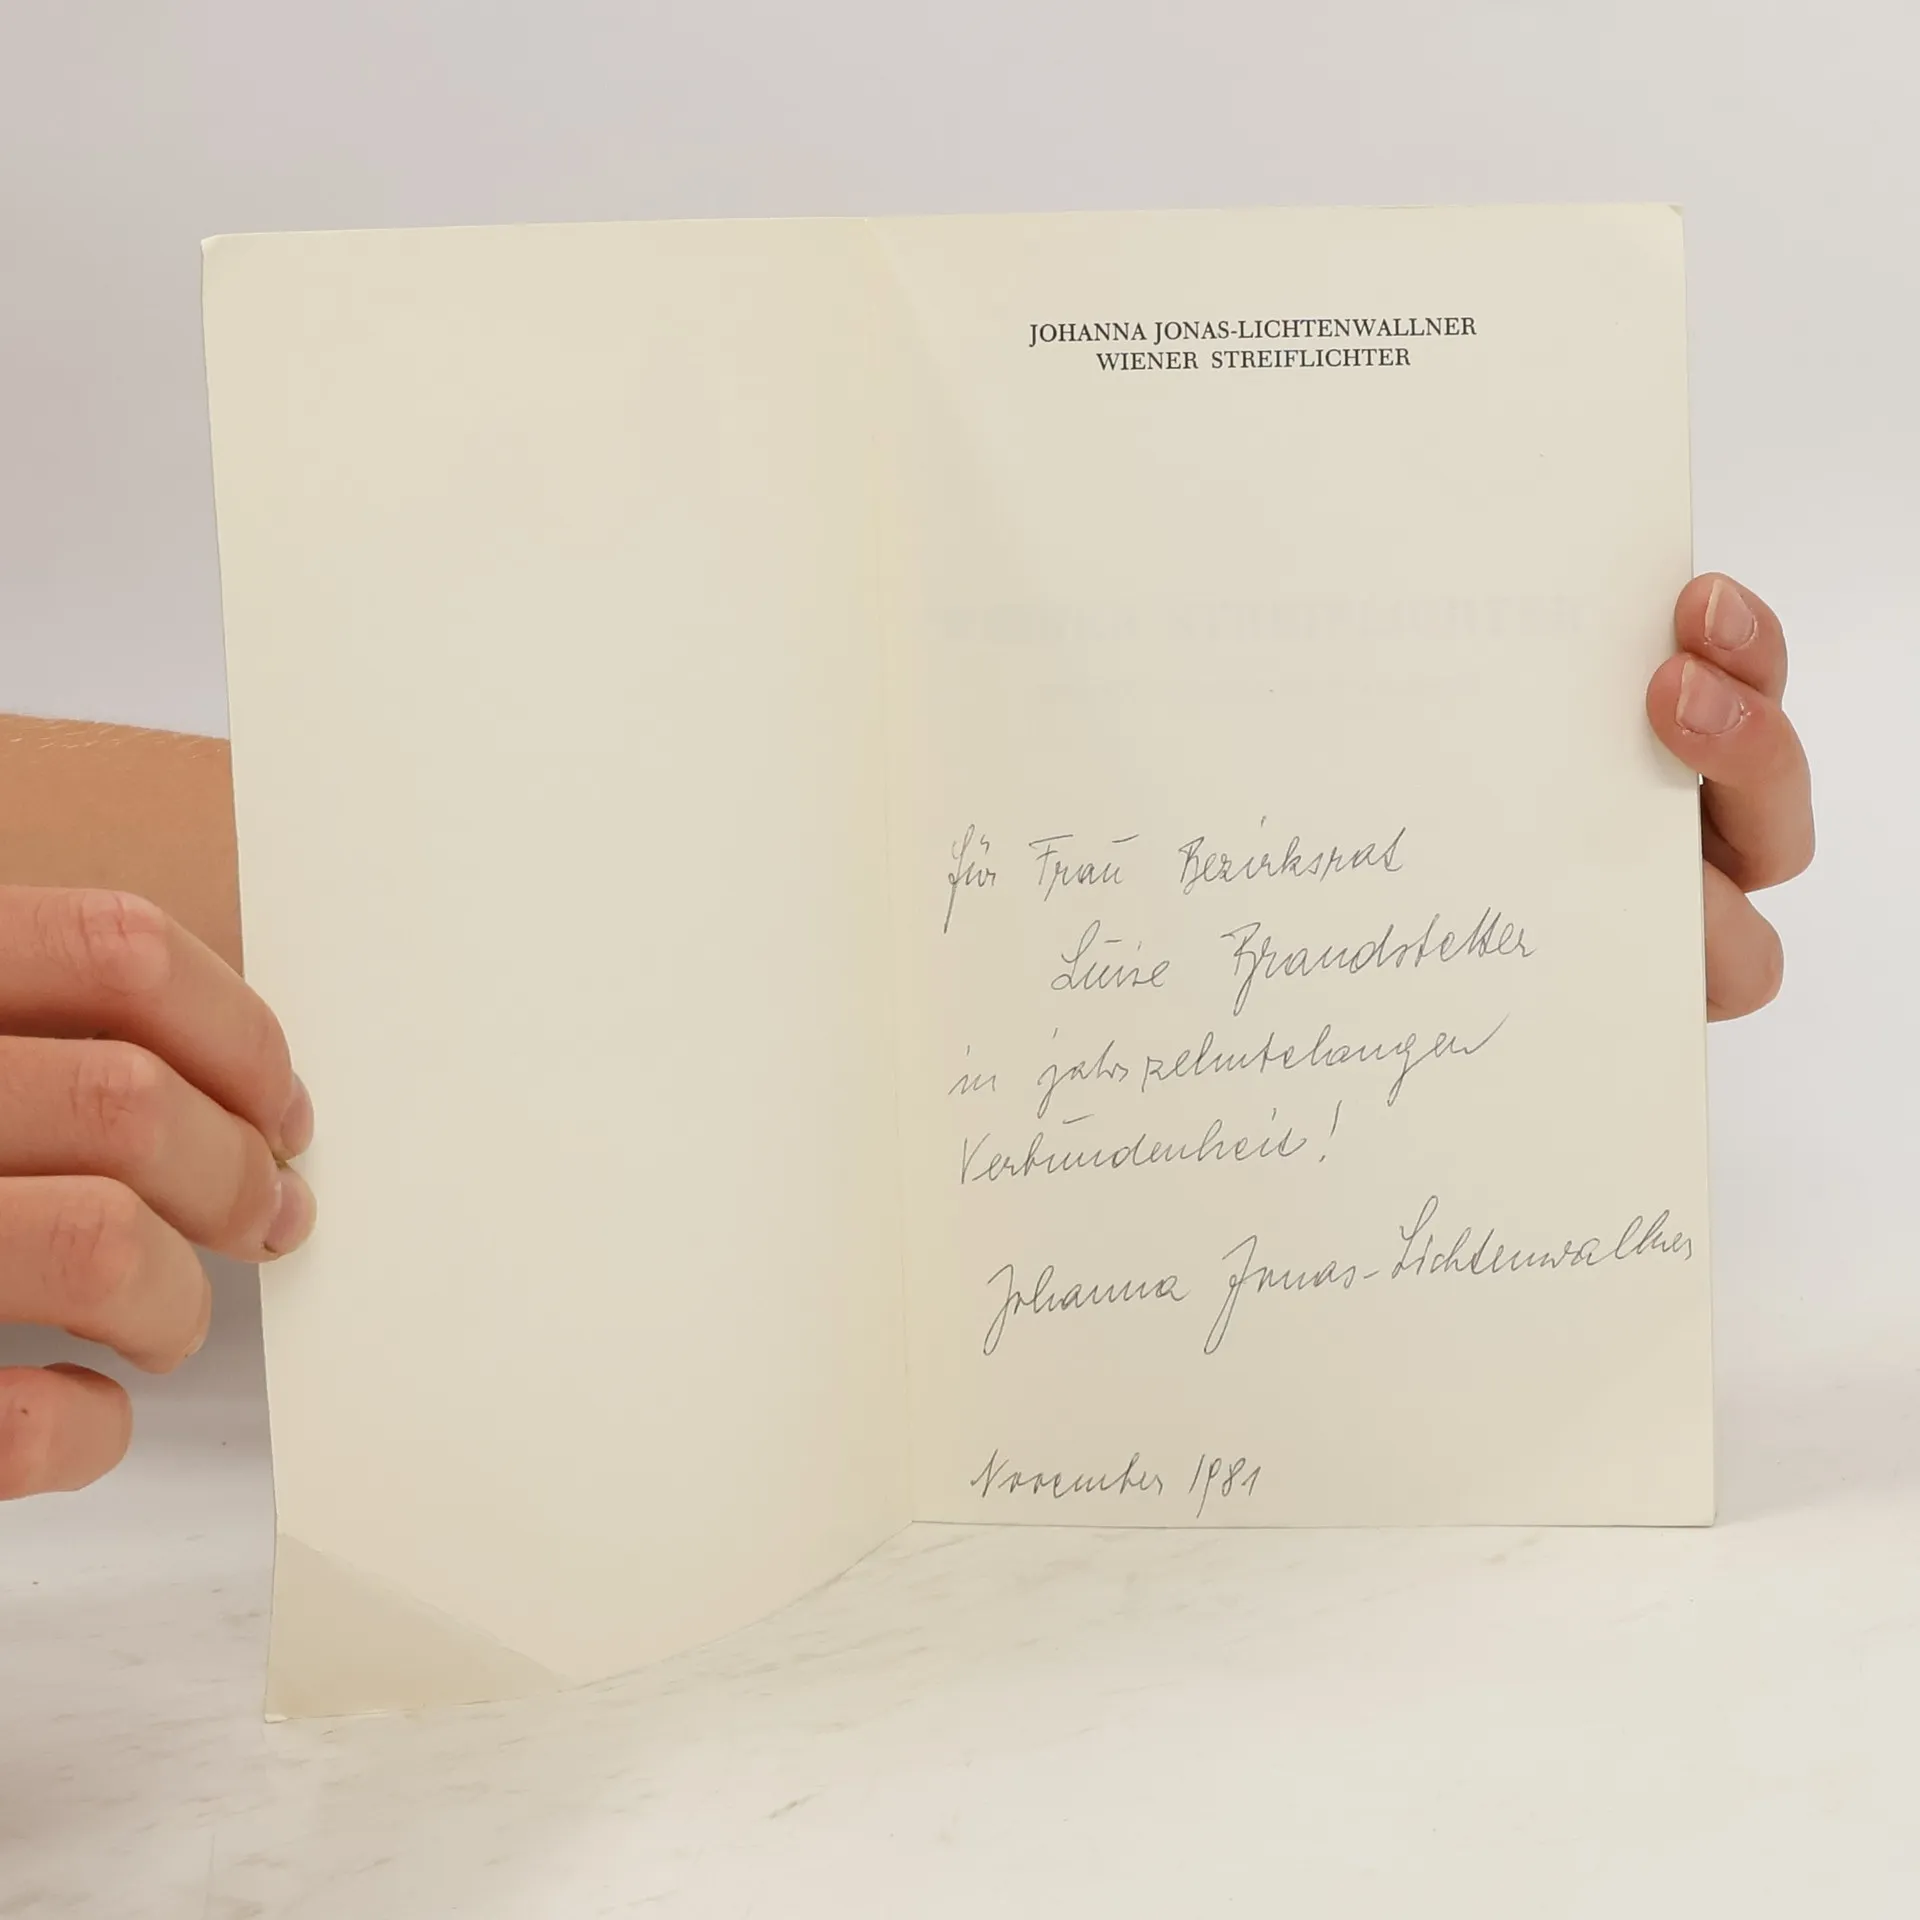 JOHANNA JONAS-LICHTENWALLNER
WIENER STREIFLICHTER
für Frau Bezirksrat
Luise Brandstetter
in jahrzehntelangen
Verbundenheit!
Johanna Jonas-Lichtenwallner
November 1981